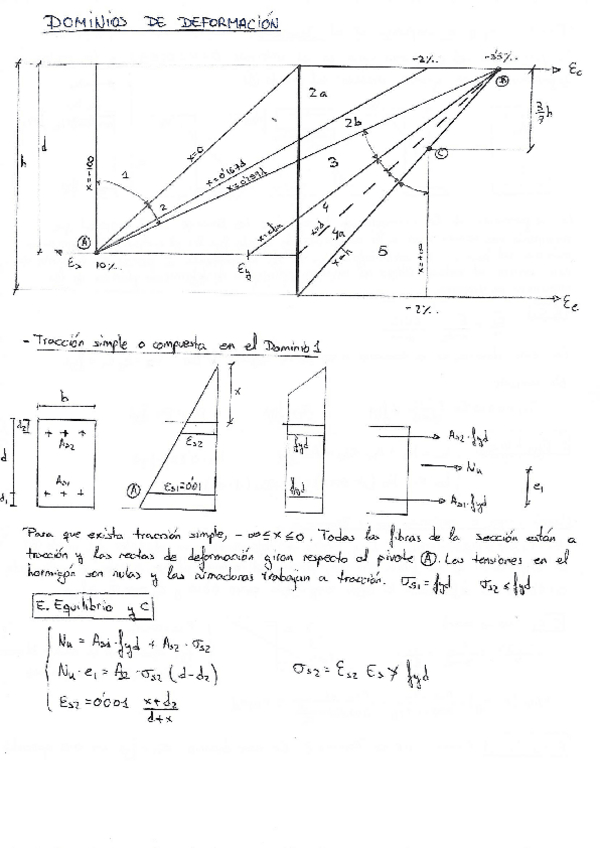 DOMINIOS DE DEFORMACIÓN
-2%.. -3'5%..
εc
B
2a
2b
3/7 h
C
d
h
x=-∞
1
x=0
x=0'167d
2
3
4
x=d
4a
x=h
5
x=+∞
A
εs 10%..
εy
-2%..
εc
- Tracción simple o compuesta en el Dominio 1
b
x
d2
As2
εs2
fyd
As2·fyd
d
Nu
As1
A
εs1=0'01
fyd
e1
d1
As1·fyd
Para que exista tracción simple, -∞≤x≤0. Todas las fibras de la sección están a
tracción y las rectas de deformación giran respecto al pivote A. Las tensiones en el
hormigón son nulas y las armaduras trabajan a tracción. σs1=fyd σs2≤fyd
E. Equilibrio y C
Nu = As1·fyd + As2·σs2
Nu·e1 = As2·σs2 (d-d2)
σs2 = εs2 Es ≯ fyd
εs2=0'001 x+d2
d+x